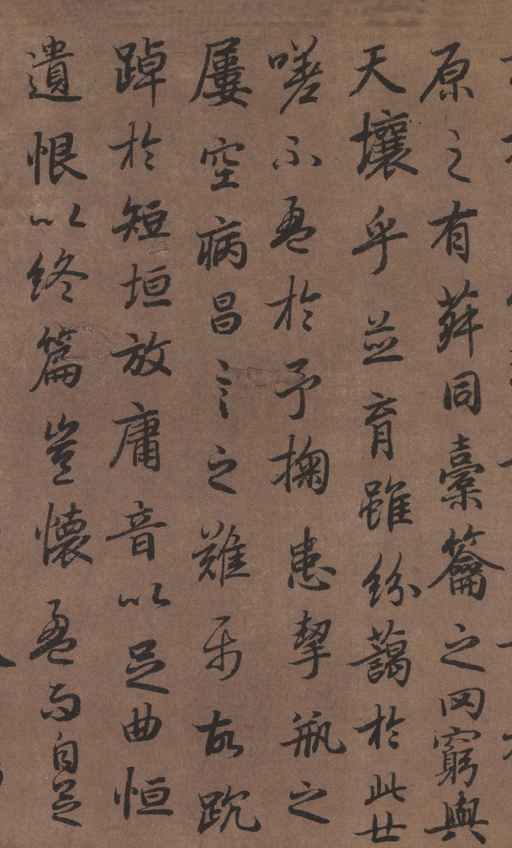 原之有菽同橐籥之罔窮與
天壤乎並育雖紛藹於此世
嗟不盈於予掬患挈瓶之
屢空病昌言之難屬故踸
踔於短垣放庸音以足曲恒
遺恨以終篇豈懷盈而自足